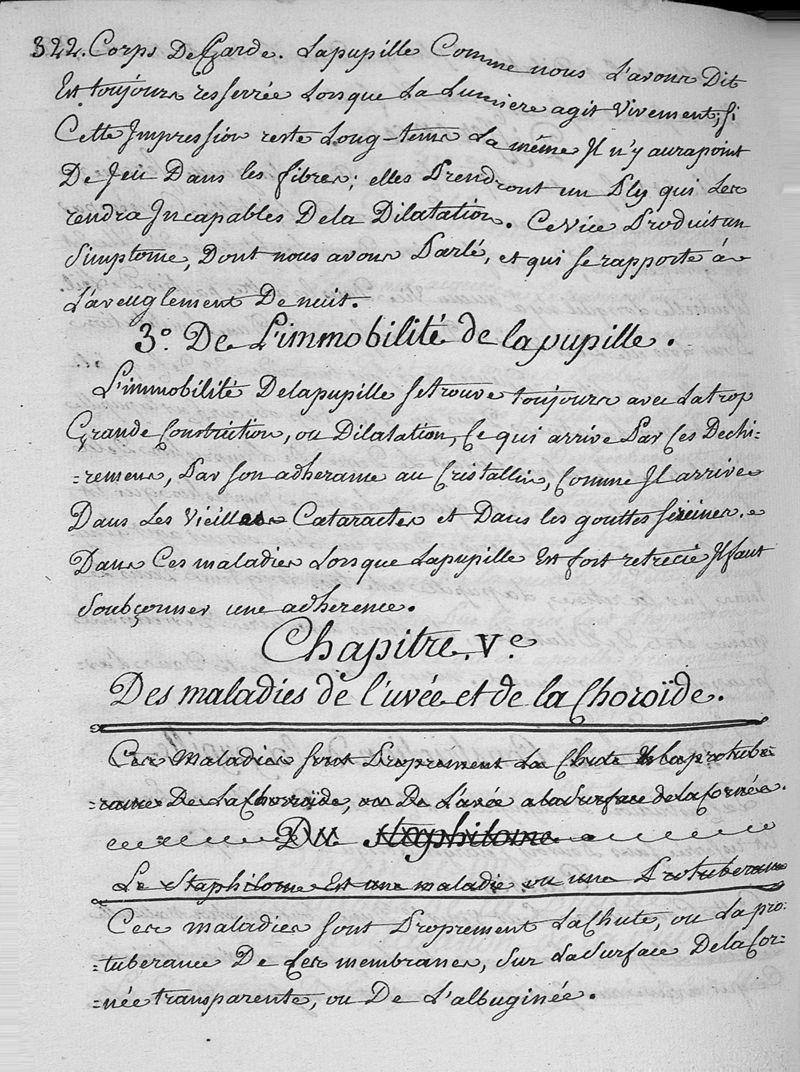 322. Corps De Garde. La pupille Comme nous L'avons Dit
Est toujours resserrée Lorsque La Lumiere agit Vivement; si
Cette Impression reste Long-tems La même Il n'y aura point
De Jeu Dans les fibres; elles Prendront un Ply qui Les
rendra Incapables De la Dilatation. Ce Vice Produit un
Simptome, Dont nous avons Parlé, et qui se rapporte à
L'aveuglement De nuit.
3.º De L'immobilité de la pupille.
L'immobilité De la pupille se trouve toujours avec La trop
Grande Constriction, ou Dilatation, Ce qui arrive Par Ces Dechi-
-remens, Par son adherance au Cristallin, Comme Il arrive
Dans Les Vieilles Cataractes et Dans les gouttes sereines.
Dans Ces maladies Lorsque La pupille Est fort retrecie Il faut
Soubçonner une adherence.
Chapitre. V.e
Des maladies de l'uvée et de la Choroïde.
Ces Maladies sont Proprement La Chute la protube
-rance De La Choroïde, ou De L'uvée a la Surface de la Cornée.
Du Staphilome.
Le Staphilome Est une maladie ou une Protuberance
Ces maladies sont Proprement La Chute, ou La pro-
-tuberance De Ces membranes, Sur La Surface De la Cor-
-née transparente, ou De L'albuginée.